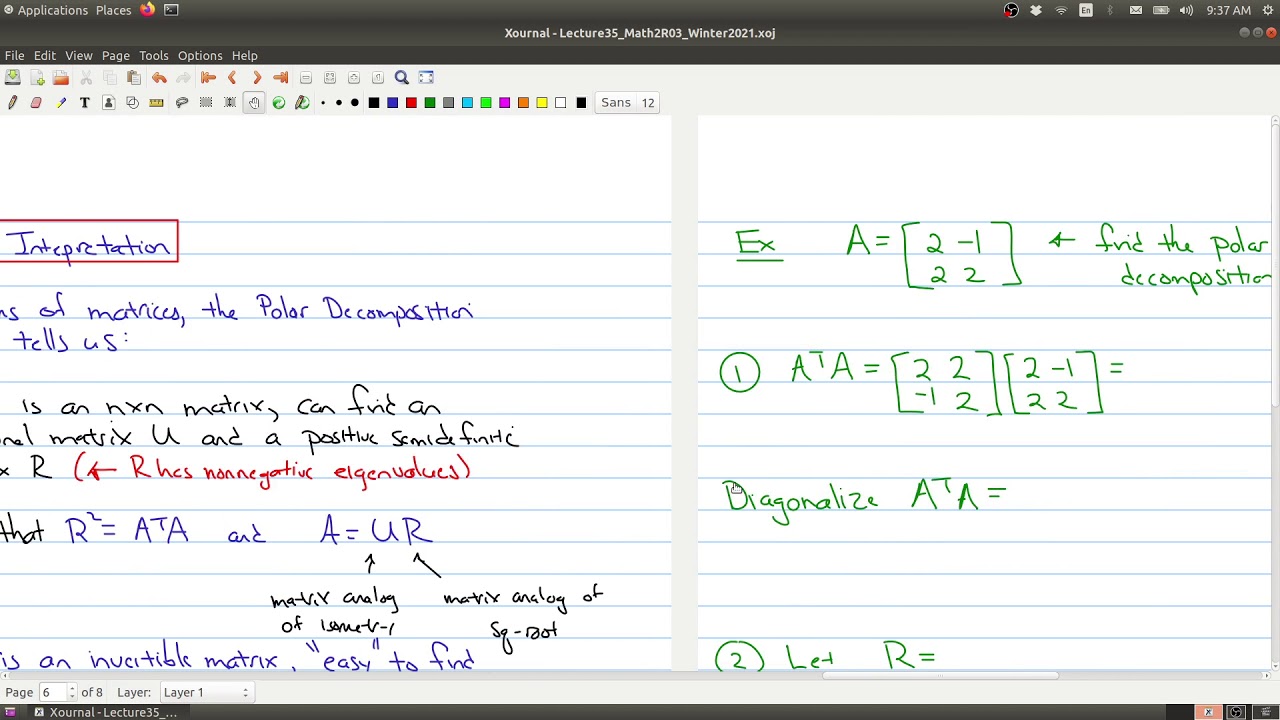 Applications Places
En
9:37 AM
Xournal - Lecture35_Math2R03_Winter2021.xoj
File Edit View Page Tools Options Help
Sans 12
Intepretation
ns of matrices, the Polar Decomposition
tells us:
is an nxn matrix, can find an
onal matrix U and a positive semidefinite
x R (← R has nonnegative eigenvalues)
that R² = AᵀA and A = UR
matrix analog of isometry
matrix analog of sq-root
is an invertible matrix, "easy" to find
Ex A = [2 -1; 2 2] ← find the polar
decomposition
① AᵀA = [2 2; -1 2] [2 -1; 2 2] =
Diagonalize AᵀA =
② Let R =
Page 6 of 8 Layer: Layer 1
Xournal - Lecture35_...